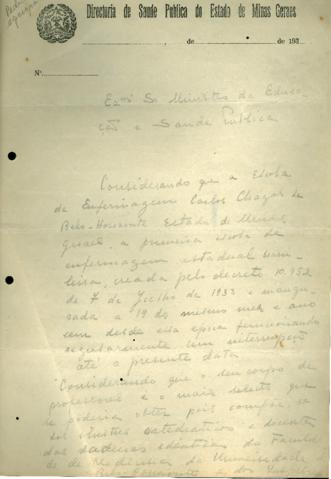 Directoria de Saude Publica do Estado de Minas Geraes
de de 193
Nº
Exmº Sr. Ministro da Educa-
ção e Saude Publica
Considerando que a Escola
de Enfermagem Carlos Chagas de
Belo-Horizonte Estado de Minas
Geraes a primeira escola de
enfermagem estadual brasi-
leira, creada pelo decreto 10.952
de 7 de Julho de 1933 e inaugu-
rada a 19 do mesmo mez e ano
vem desde esta epoca funcionando
regularmente sem interrupção
até o presente data.
Considerando que o seu corpo de
professores é o mais selecto que
se poderia obter pois compõe-se
dos ilustres catedraticos e docentes
das cadeiras identicas da Facul
de de Medicina da Universidade